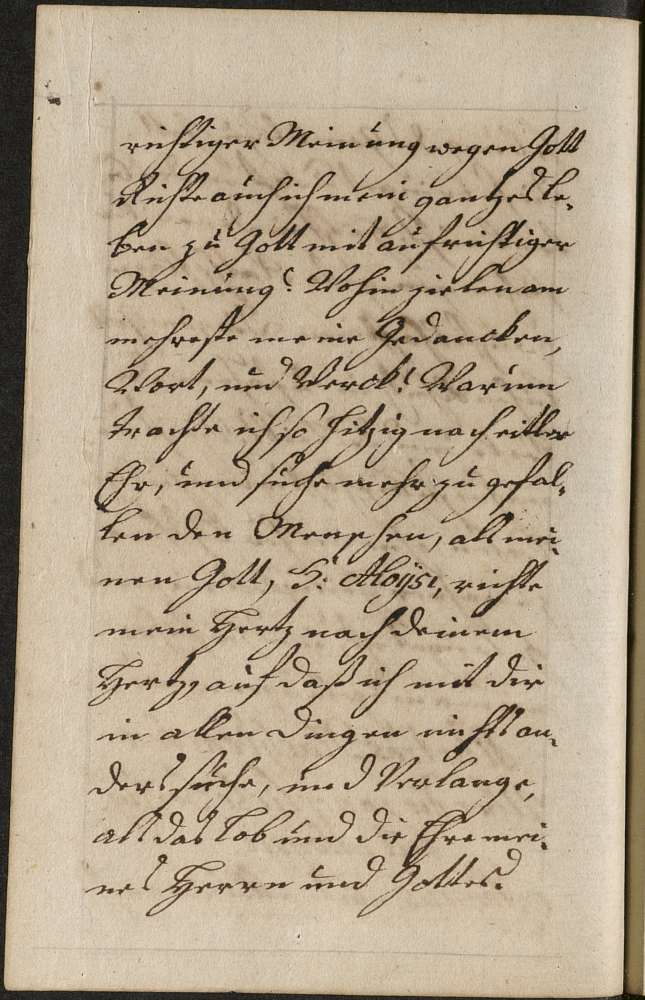 richtiger Meinung wegen Gott
Richte auch ich mein gantzes Le-
ben zu Gott mit aufrichtiger
Meinung? Wohin zielen am
mehreste meine Gedancken,
Wort, und Werck? Warum
trachte ich so hitzig nach eitler
Ehr, und suche mehr zu gefal-
len den Menschen, als mei-
nen Gott, H: Aloÿsi, richte
mein Hertz nach deinem
Hertz, auf daß ich mit dir
in allen Dingen nichts an-
ders suche, und Verlange,
als das Lob und die Ehre mei-
nes Herrn und Gottes.